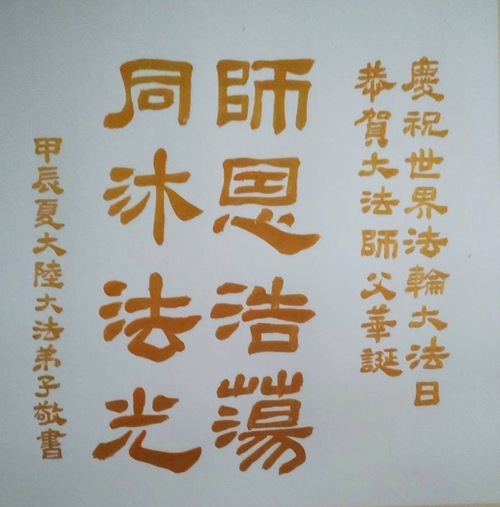 慶祝世界法輪大法日
恭賀大法師父華誕
師恩浩蕩
同沐法光
甲辰夏大陸大法弟子敬書